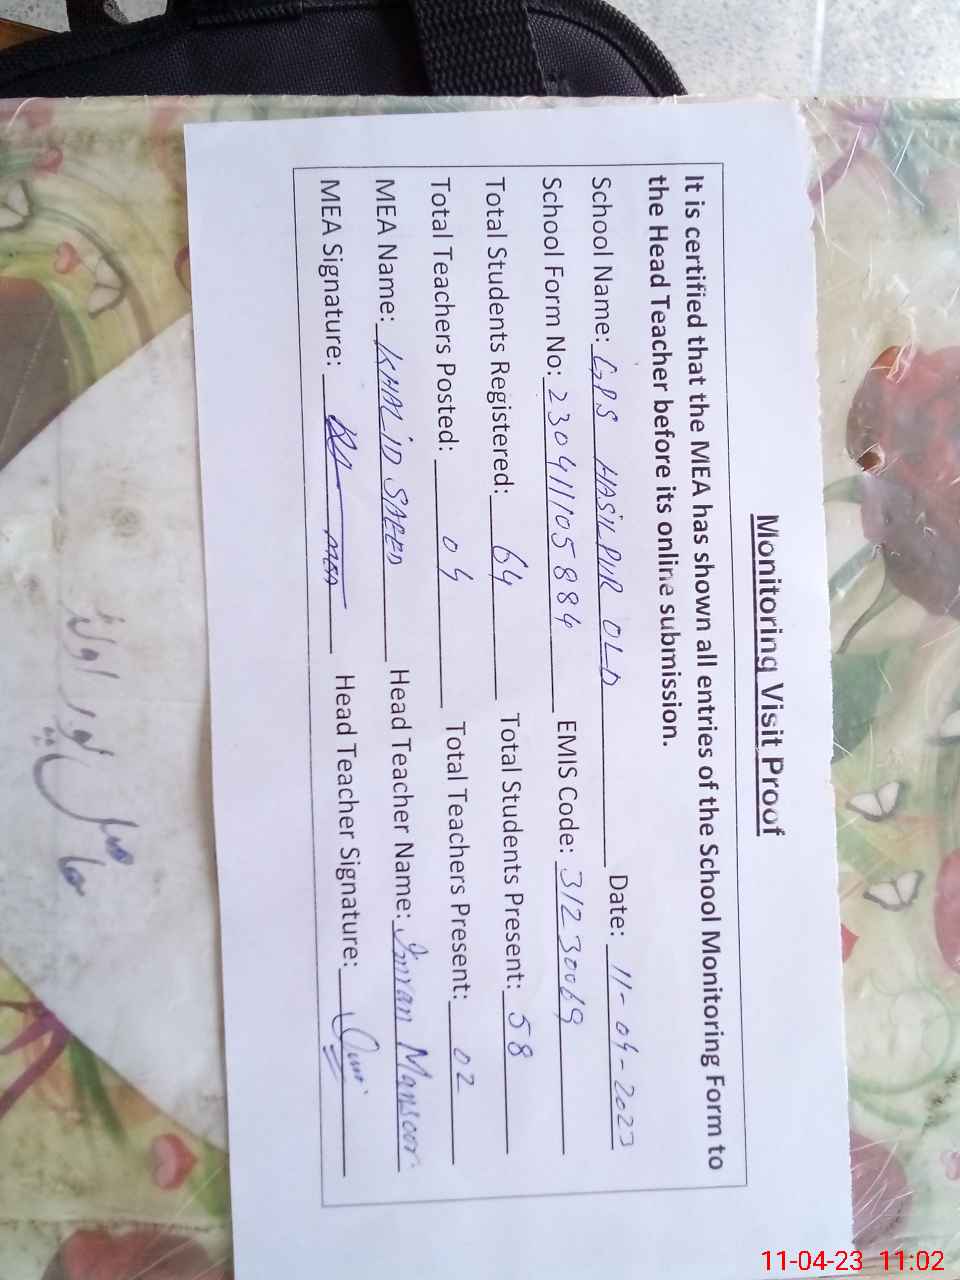 Monitoring Visit Proof
It is certified that the MEA has shown all entries of the School Monitoring Form to
the Head Teacher before its online submission.
School Name: GPS HASILPUR OLD Date: 11-04-2023
School Form No: 230411105884 EMIS Code: 31230069
Total Students Registered: 64 Total Students Present: 58
Total Teachers Posted: 04 Total Teachers Present: 02
MEA Name: KHALID SAEED Head Teacher Name: Imran Mansoor
MEA Signature: MEA Head Teacher Signature:
11-04-23 11:02